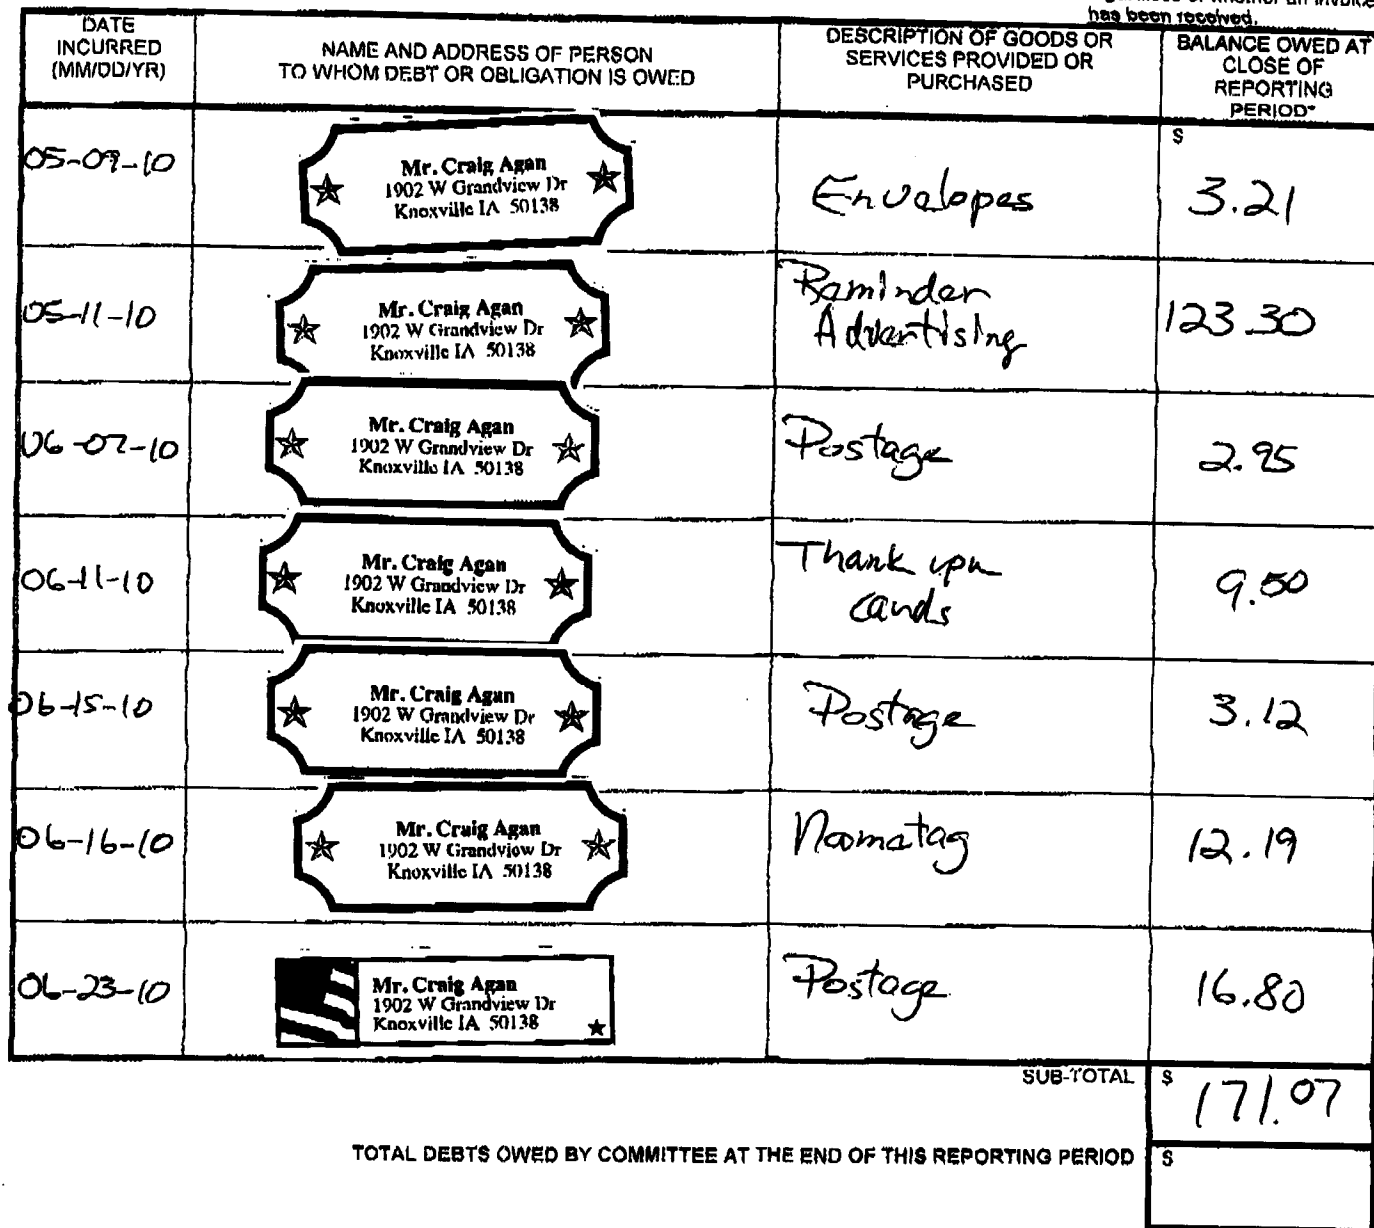 has been received.
DATE
INCURRED
(MM/DD/YR)
NAME AND ADDRESS OF PERSON
TO WHOM DEBT OR OBLIGATION IS OWED
DESCRIPTION OF GOODS OR
SERVICES PROVIDED OR
PURCHASED
BALANCE OWED AT
CLOSE OF
REPORTING
PERIOD*
05-09-10
Mr. Craig Agan
1902 W Grandview Dr
Knoxville IA 50138
Envelopes
$
3.21
05-11-10
Mr. Craig Agan
1902 W Grandview Dr
Knoxville IA 50138
Reminder
Advertising
123.30
06-07-10
Mr. Craig Agan
1902 W Grandview Dr
Knoxville IA 50138
Postage
2.95
06-11-10
Mr. Craig Agan
1902 W Grandview Dr
Knoxville IA 50138
Thank you
cards
9.50
06-15-10
Mr. Craig Agan
1902 W Grandview Dr
Knoxville IA 50138
Postage
3.12
06-16-10
Mr. Craig Agan
1902 W Grandview Dr
Knoxville IA 50138
12.19
06-23-10
Mr. Craig Agan
1902 W Grandview Dr
Knoxville IA 50138
Postage
16.80
SUB-TOTAL
$ 171.07
TOTAL DEBTS OWED BY COMMITTEE AT THE END OF THIS REPORTING PERIOD
$